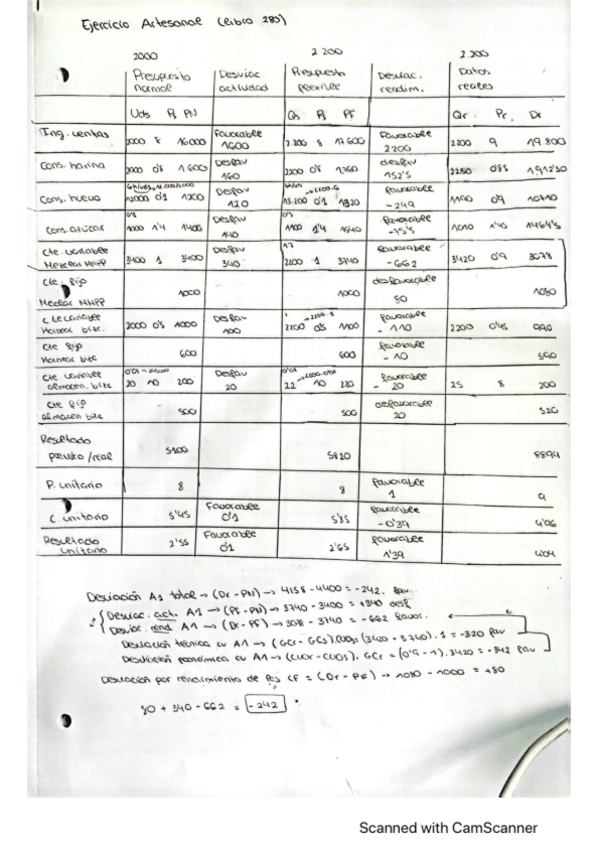 Ejercicio Artesanal (libro 283)
2000 2.200 2.200
Presupuesto normal Desviac actividad Presupuesto flexible Desviac. rendim. Datos reales
Uds Pj PN Qs Pj PF Qr. Pr. Dr
Ing. ventas 2000 8 16000 Favorable 1600 2.200 8 17600 Favorable 2200 2200 9 19.800
Cons. harina 2000 0'8 1.600 Desfav 160 2200 0'8 1760 desfav 152'5 2250 0'85
Cons. huevo 12000 0'1 1200 Desfav 120 13.200 0'1 1320 favorable -249 1190 0'9
Cons. azúcar 1000 1'4 1400 Desfav 140 1100 1'4 1540 favorable 1010 1'45 1464'5
Cte variable Mezclar MMPP 3400 1 3400 Desfav 340 1'7 2200 1 3740 favorable -662 3420 0'9 3078
Cte. fijo Mezclar MMPP 1000 1000 desfavorable 80 1080
Cte variable Hornear bizc. 2000 0'5 1000 Desfav 100 2200 0'5 1100 favorable -110 2200 0'45 990
Cte fijo Hornear bizc 600 600 favorable -10 590
Cte variable almacen. bizc 20 10 200 Desfav 20 22 10 220 favorable -20 25 8 200
Cte fijo almacen bizc 500 500 desfavorable 20 520
Resultado previsto/real 5100 5820 8894
P. unitario 8 8 favorable 1 9
C. unitario 5'45 Favorable 0'1 5'35 favorable -0'39 4'96
Resultado unitario 2'55 Favorable 0'1 2'65 favorable 1'39 4'04
Desviación A1 total → (Dr - PN) → 4158 - 4400 = -242. fav
Desviac. act. A1 → (PF - PN) → 3740 - 3400 = +340 desf
Desviac. rend A1 → (Dr - PF) → 3078 - 3740 = -662 favor.
Desviación técnica cv A1 → (GCr - GCs).CUOs = (3420 - 3740).1 = -320 fav
Desviación económica cv A1 → (CUOr - CUOs).GCr = (0'9 - 1).3420 = -342 fav
Desviación por rendimiento de los CF = (Dr - PF) → 1080 - 1000 = +80
80 + 340 - 662 = -242
Scanned with CamScanner